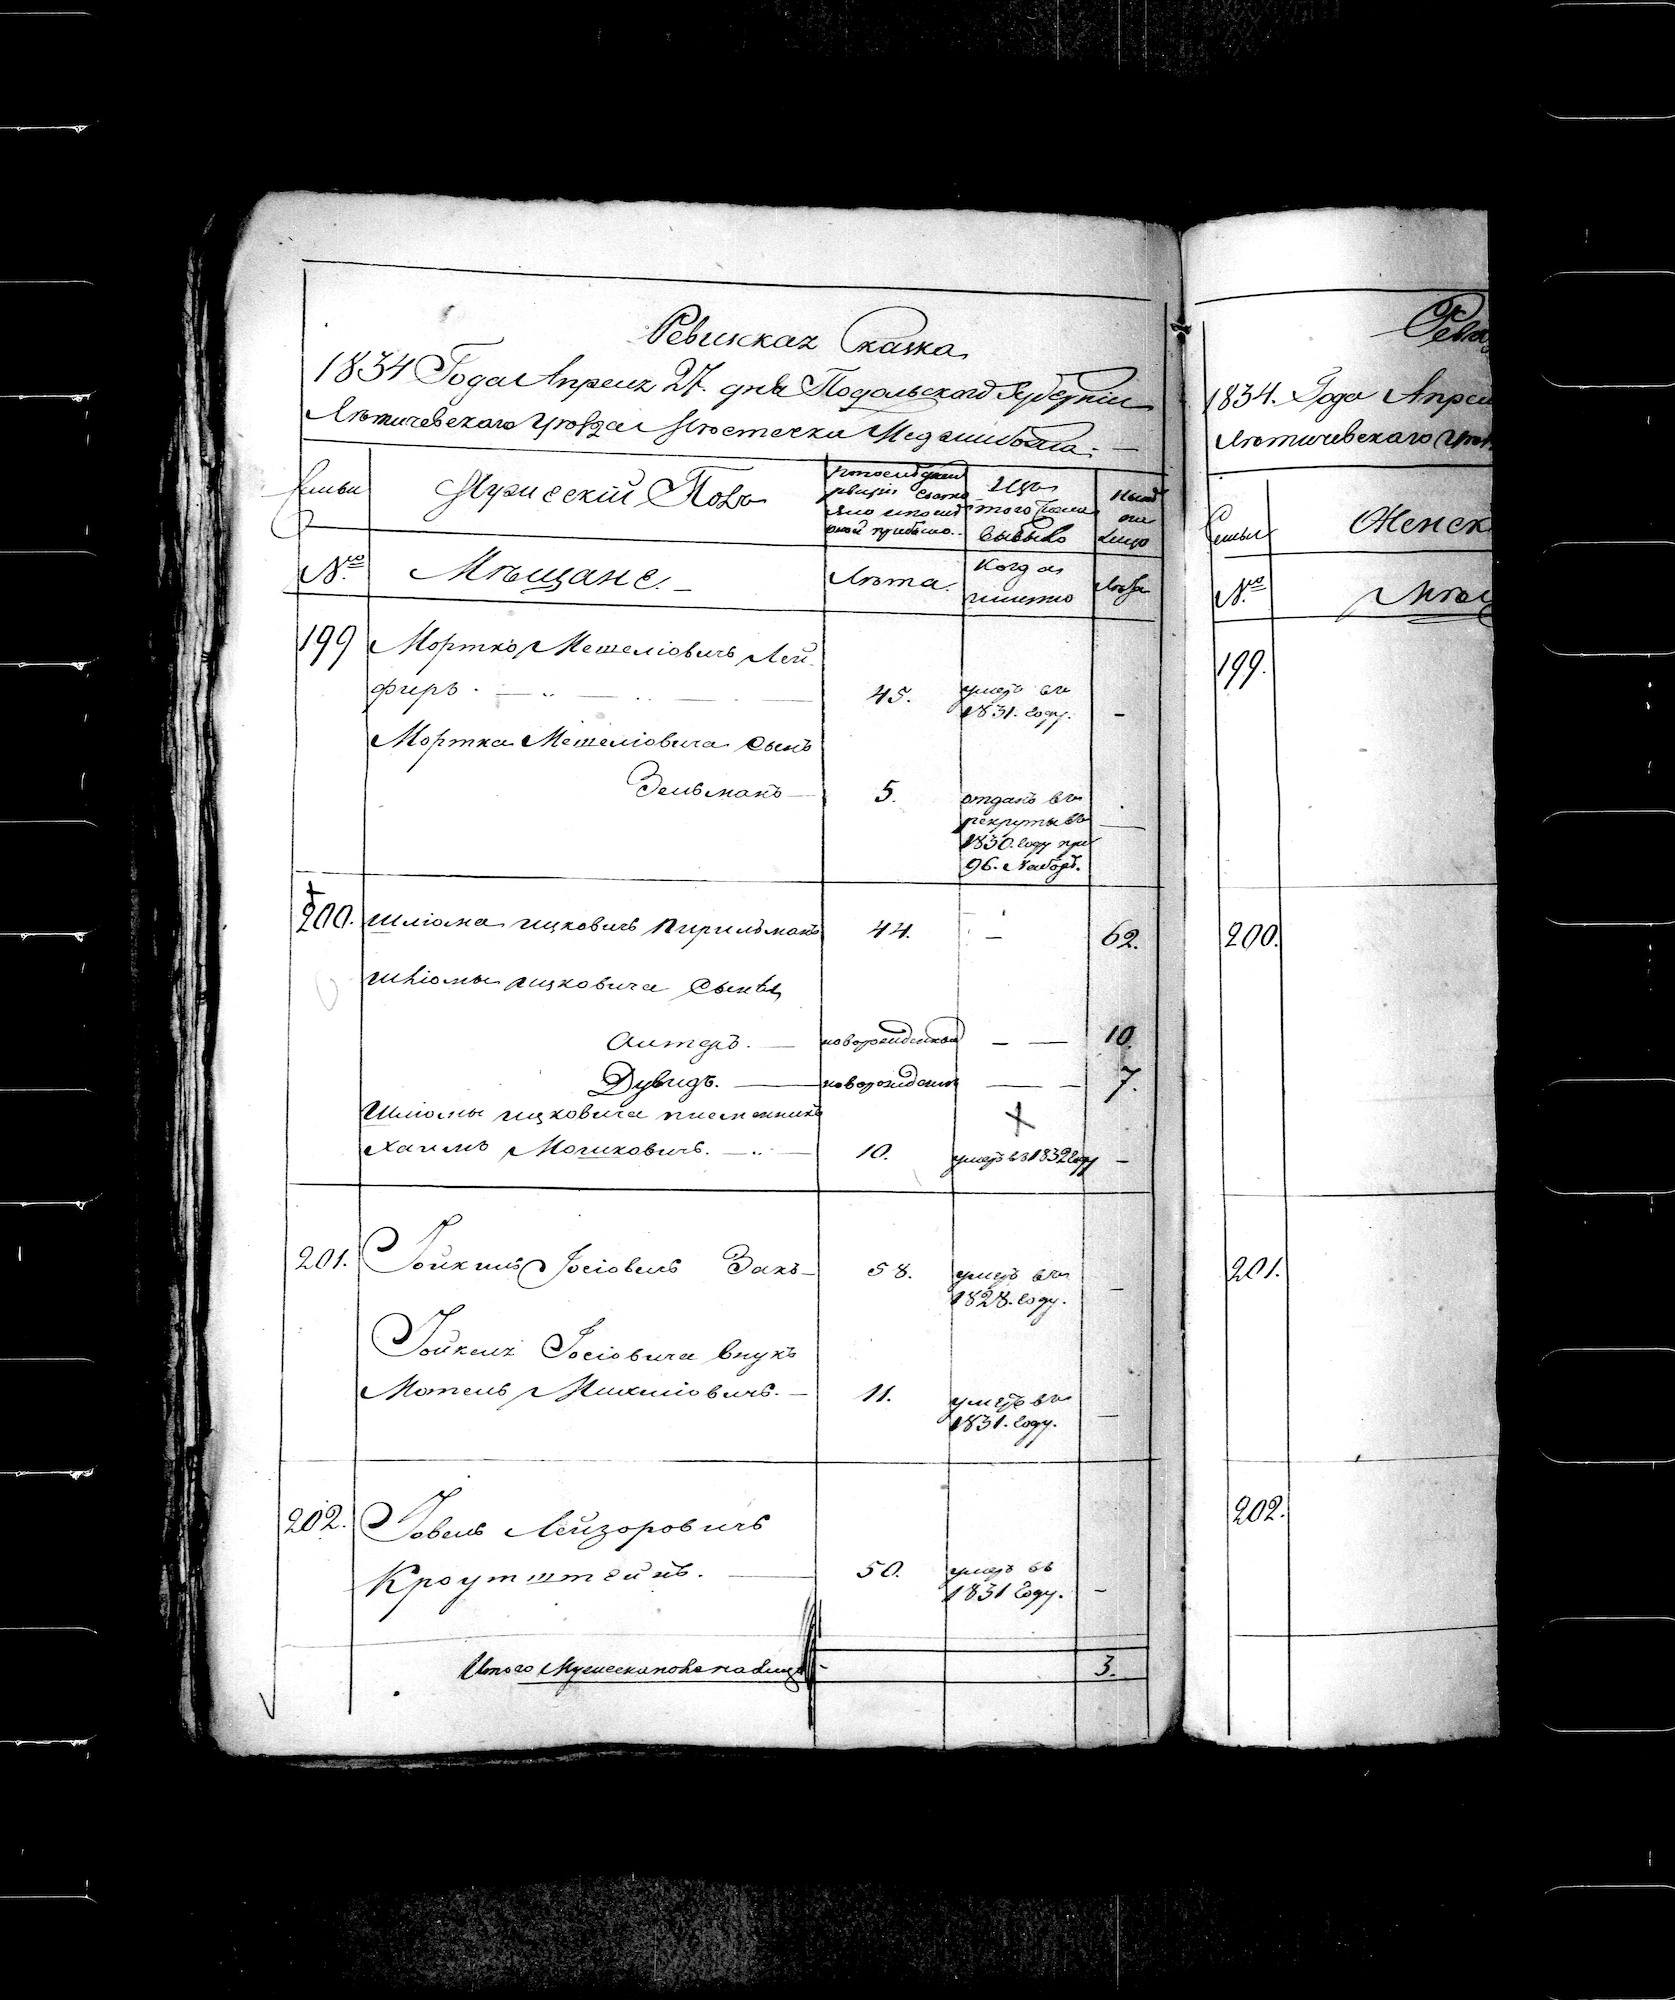 Ревизская Сказка
1834 Года Апреля 27. дня Подольской Губерніи
Лѣтичевского уѣзда Мѣстечка Меджибожа. —
Семьи
Мужескій Полъ
По последней
ревизіи состо
яло и после
оной прибыло.
Изъ
того числа
выбыло
Ныне
на
лицо
№
Мѣщане. —
Лѣта.
Когда
именно
Лѣта
199
Мортко Мешеліовичъ Лей-
феръ. —
45.
умеръ въ
1831. году.
—
Мортка Мешеліовича сынъ
Зельманъ —
5.
отданъ въ
рекруты въ
1830. году при
96. Наборѣ.
200.
Шліома ицковичъ Пирильманъ
44.
—
62.
Шліомы ицковича сынъ
Алтеръ. —
новорожденный
— —
10.
Дувидъ. —
новорожденный
— —
7.
Шліомы ицковича племянникъ
Хаимъ Мошковичъ. —
10.
умеръ въ 1832 году
—
201.
Іойкиль Іосіовичъ Закъ —
58.
умеръ въ
1828. году.
—
Іойкеля Іосіовича внукъ
Мотель —
11.
умеръ въ
1831. году.
—
202.
Іовель Лейзоровичъ
Кроутштейнъ. —
50.
умеръ въ
1831 году.
—
Итого Мужеска пола на лицо
3.
Реви
1834. Года Апрел
Лѣтичевского уѣз
Семьи
Женск
№
Мѣщ
199.
200.
201.
202.